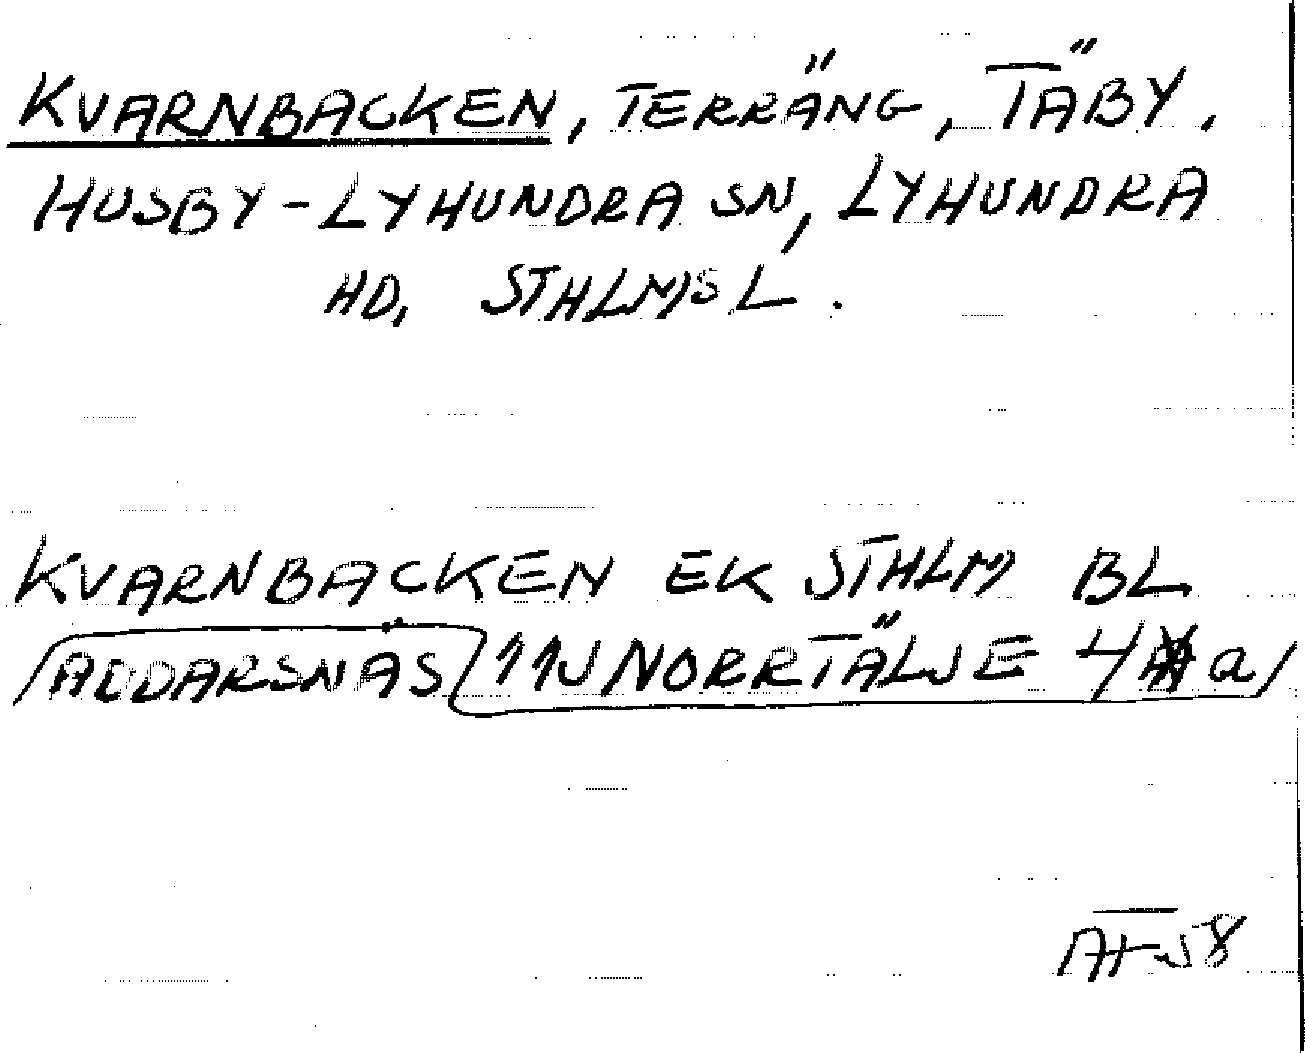 KVARNBACKEN, TERRÄNG, TÄBY,
HUSBY-LYHUNDRA SN, LYHUNDRA
HD, STHLMS L.
KVARNBACKEN EK STHLM BL
ADDARSNÄS 11J NORRTÄLJE 4 a